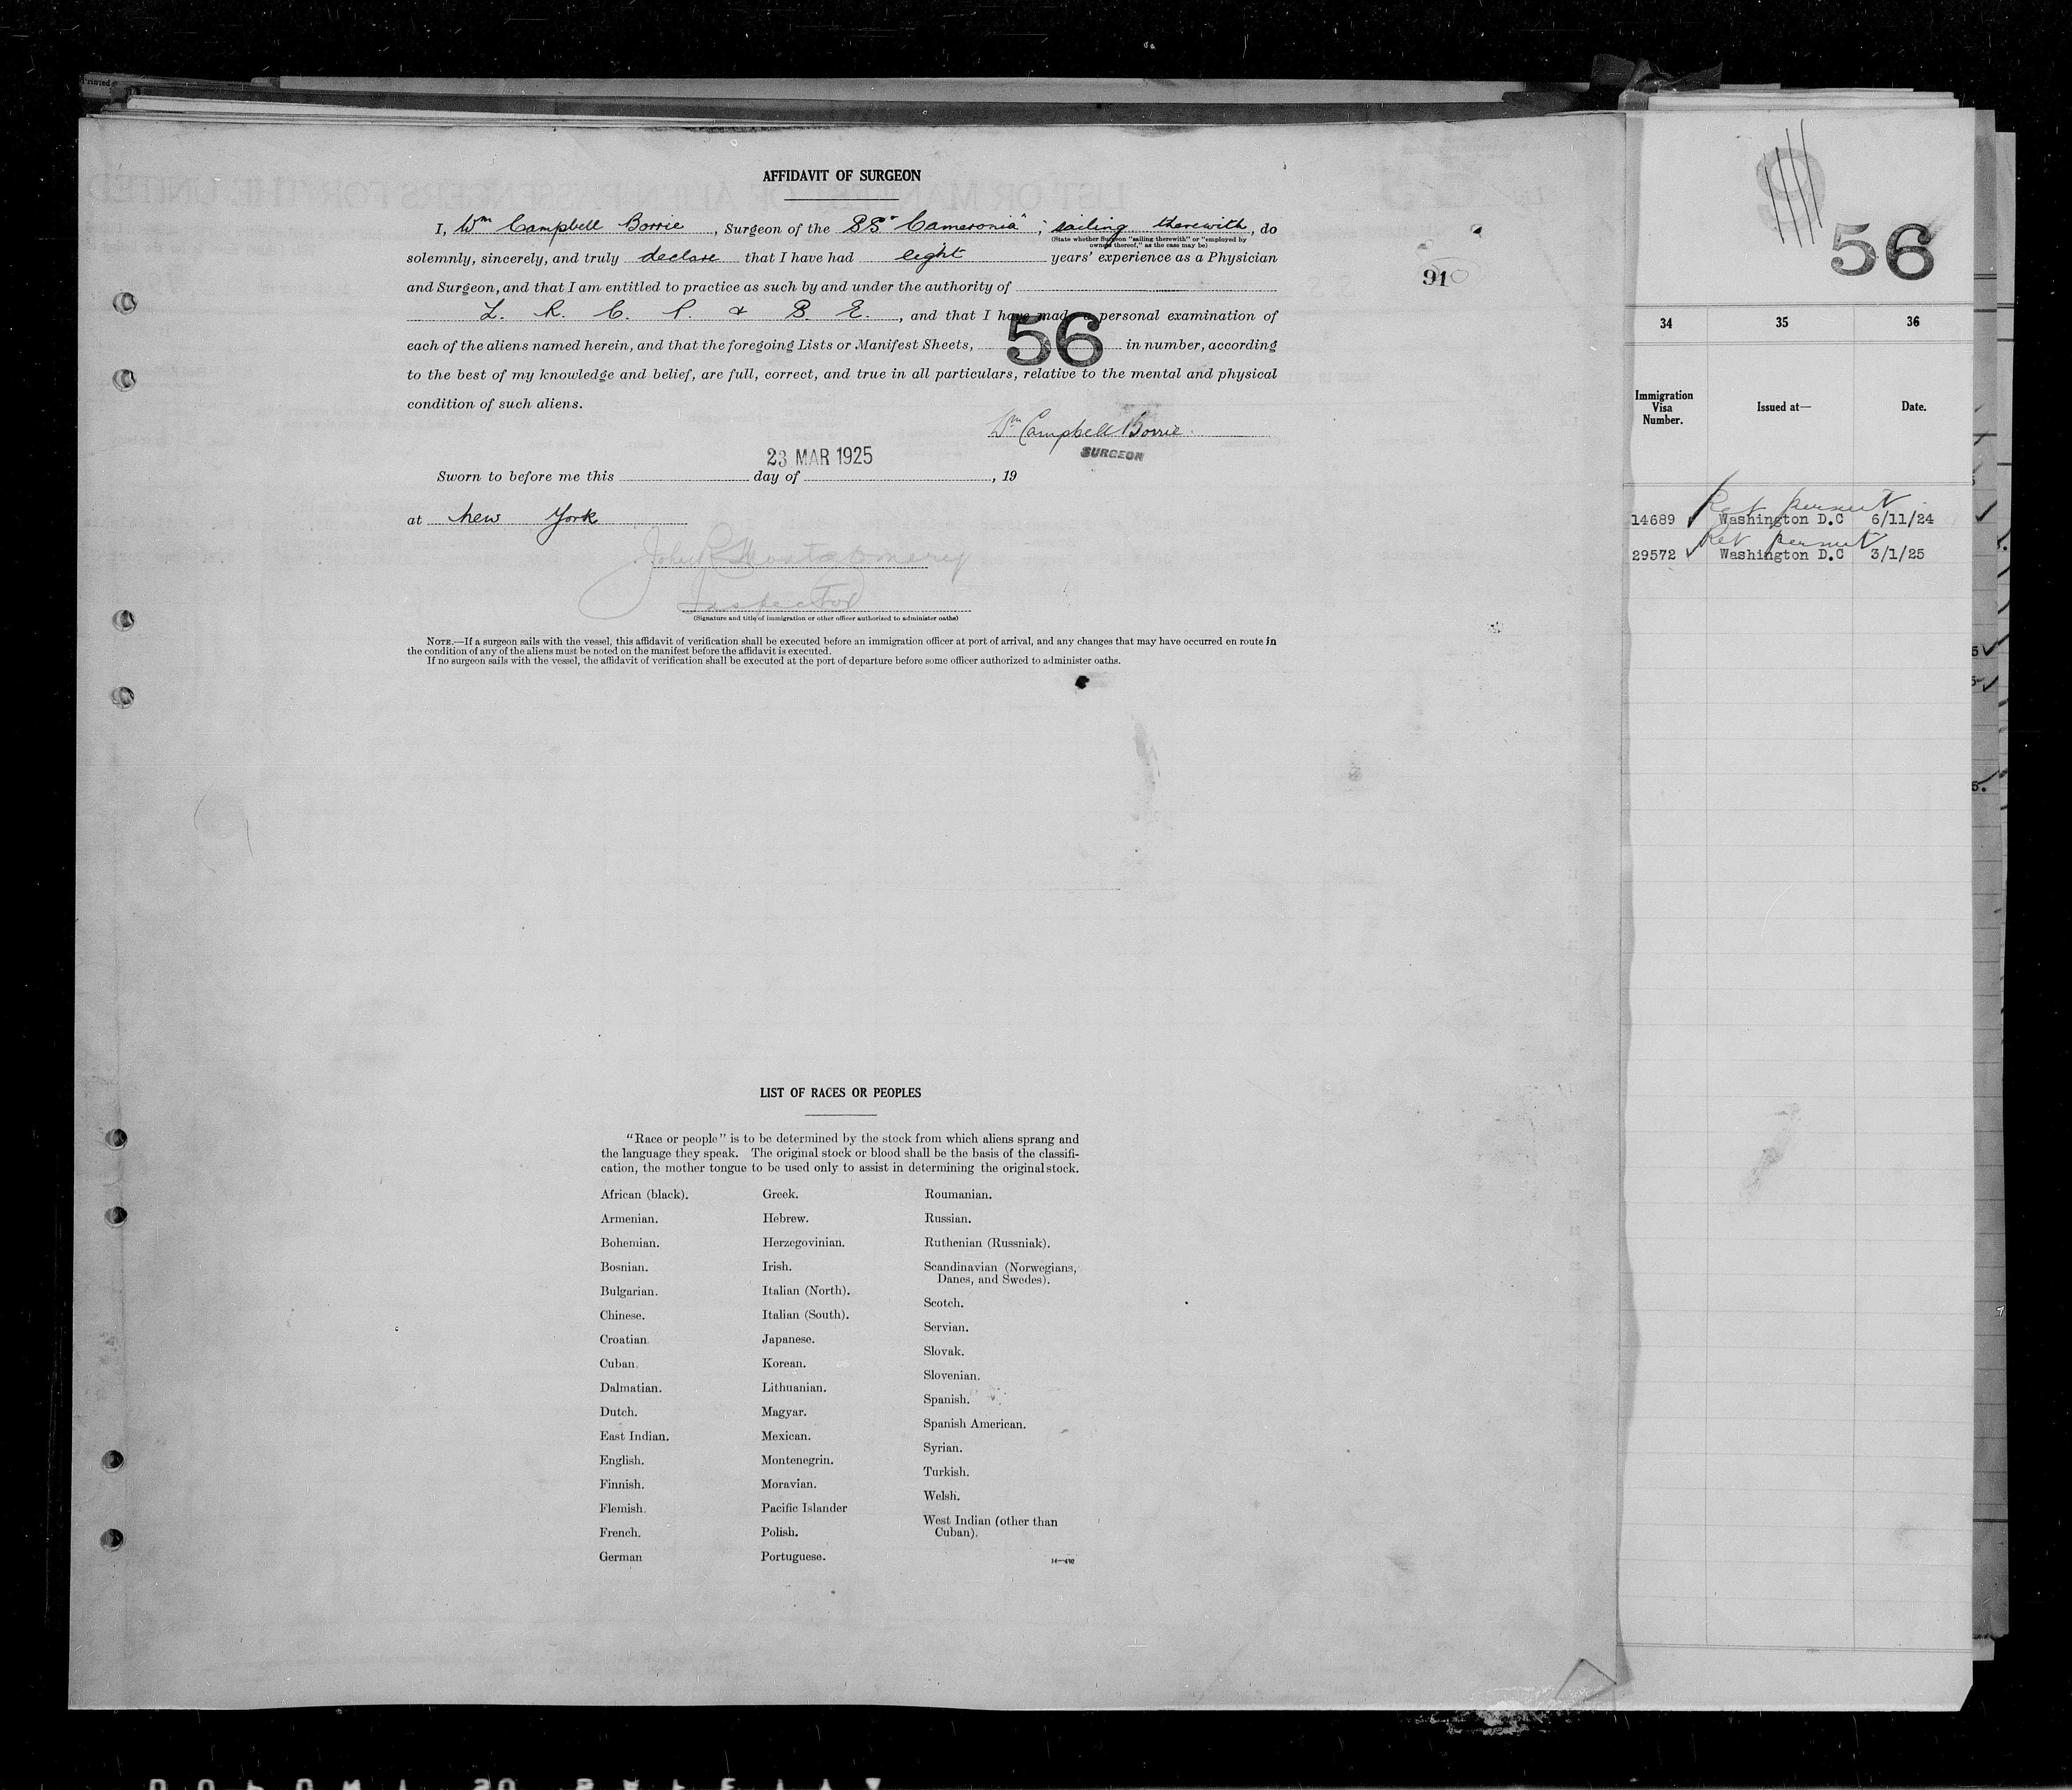 AFFIDAVIT OF SURGEON
I, Wm Campbell Borrie, Surgeon of the SS "Cameronia"; sailing therewith, do
(State whether Surgeon "sailing therewith" or "employed by
owners thereof," as the case may be)
solemnly, sincerely, and truly declare that I have had eight years' experience as a Physician
and Surgeon, and that I am entitled to practice as such by and under the authority of
L. R. C. P. & S. E., and that I have made a personal examination of
each of the aliens named herein, and that the foregoing Lists or Manifest Sheets, 56 in number, according
to the best of my knowledge and belief, are full, correct, and true in all particulars, relative to the mental and physical
condition of such aliens.
Wm Campbell Borrie.
SURGEON
23 MAR 1925
Sworn to before me this day of , 19
at New York
Inspector
(Signature and title of immigration or other officer authorized to administer oaths)
NOTE.—If a surgeon sails with the vessel, this affidavit of verification shall be executed before an immigration officer at port of arrival, and any changes that may have occurred en route in
the condition of any of the aliens must be noted on the manifest before the affidavit is executed.
If no surgeon sails with the vessel, the affidavit of verification shall be executed at the port of departure before some officer authorized to administer oaths.
910
LIST OF RACES OR PEOPLES
"Race or people" is to be determined by the stock from which aliens sprang and
the language they speak. The original stock or blood shall be the basis of the classifi-
cation, the mother tongue to be used only to assist in determining the original stock.
African (black).
Armenian.
Bohemian.
Bosnian.
Bulgarian.
Chinese.
Croatian.
Cuban.
Dalmatian.
Dutch.
East Indian.
English.
Finnish.
Flemish.
French.
German
Greek.
Hebrew.
Herzegovinian.
Irish.
Italian (North).
Italian (South).
Japanese.
Korean.
Lithuanian.
Magyar.
Mexican.
Montenegrin.
Moravian.
Pacific Islander
Polish.
Portuguese.
Roumanian.
Russian.
Ruthenian (Russniak).
Scandinavian (Norwegians,
Danes, and Swedes).
Scotch.
Servian.
Slovak.
Slovenian.
Spanish.
Spanish American.
Syrian.
Turkish.
Welsh.
West Indian (other than
Cuban).
9
56
34 35 36
Immigration
Visa
Number.
Issued at—
Date.
Ret permit
14689 Washington D.C 6/11/24
Ret permit
29572 Washington D.C 3/1/25